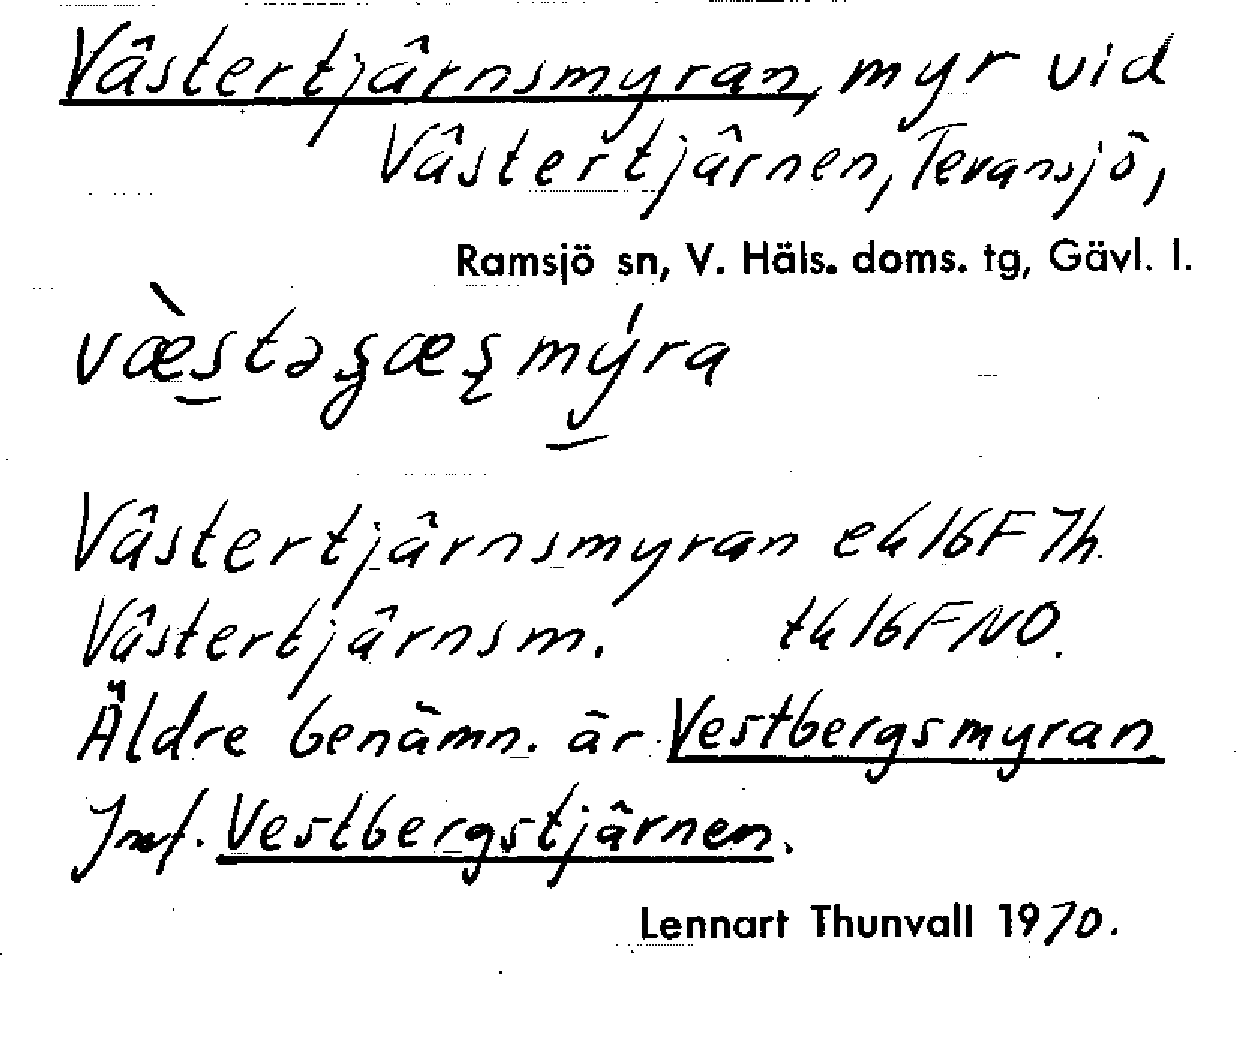 Västertjärnsmyran, myr vid
Västertjärnen, Tevansjö,
Ramsjö sn, V. Häls. doms. tg, Gävl. l.
Västertjärnsmyran ek 16F 7h.
Västertjärnsm. tk 16F NO.
Äldre benämn. är Vestbergsmyran
Jmf. Vestbergstjärnen.
Lennart Thunvall 1970.